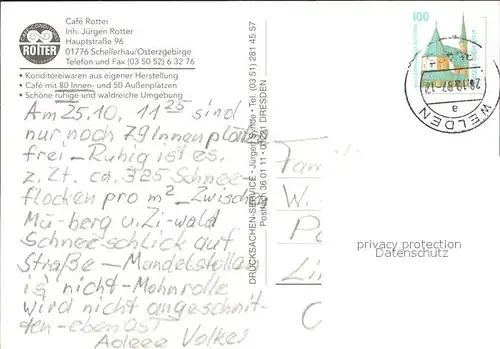 CAFÉ-KONDITOREI
ROTTER
Café Rotter
Inh. Jürgen Rotter
Hauptstraße 96
01776 Schellerhau/Osterzgebirge
Telefon und Fax (03 50 52) 6 32 76
• Konditoreiwaren aus eigener Herstellung
• Café mit 80 Innen- und 50 Außenplätzen
• Schöne ruhige und waldreiche Umgebung
Am 25.10. 11 25 sind
nur noch 79 Innenplätze
frei - Ruhig ist es.
z.Zt. ca. 325 Schnee-
flocken pro m² - Zwischen
Mü-berg u. Zi-wald
Schneeschlick auf
Straße - Mandelstollen
is nicht - Mohnrolle
wird nicht angeschnit-
ten - eben Ost
Adeee Volker
DRUCKSACHEN-SERVICE • Jürgen • Tel. (03 51) 281 45 57
Postfach 36 01 11 • 01321 DRESDEN
100
28.10.97-12
a
WELDEN
Fam
W.
P
Lin
privacy protection
Datenschutz